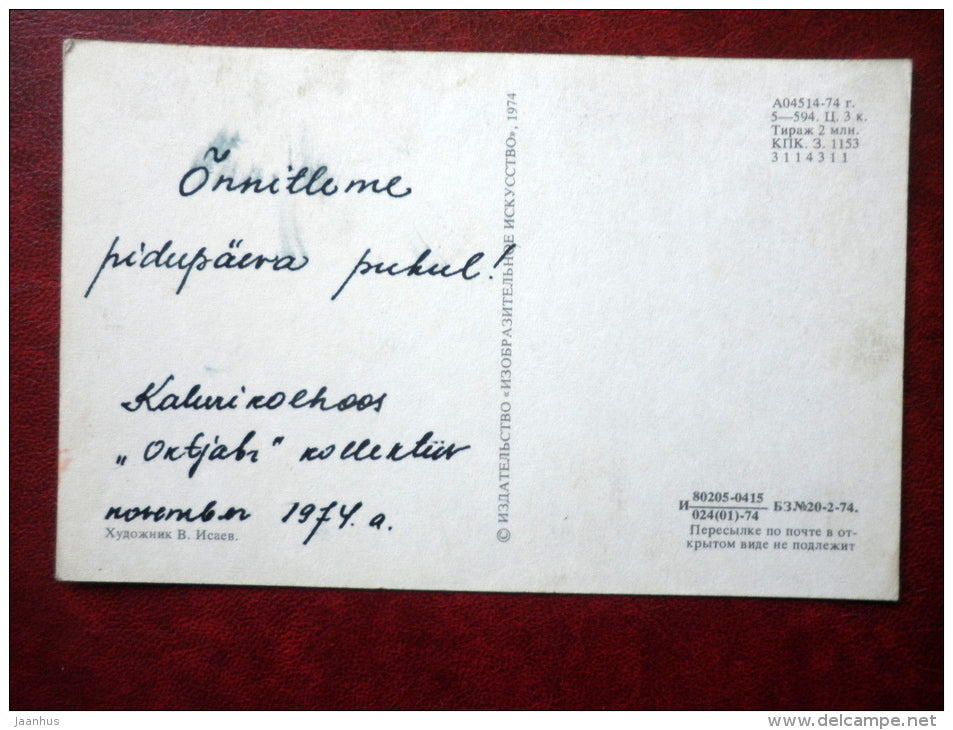 Õnnitleme
pidupäeva puhul!
Kalurikolhoos
„Oktjabr" kollektiiv
november 1974. a.
Художник В. Исаев.
© ИЗДАТЕЛЬСТВО «ИЗОБРАЗИТЕЛЬНОЕ ИСКУССТВО», 1974
А04514-74 г.
5—594. Ц. 3 к.
Тираж 2 млн.
КПК. З. 1153
3114311
И 80205-0415
024(01)-74 БЗ.№20-2-74.
Пересылке по почте в от-
крытом виде не подлежит
jaanhus
delcampe.net